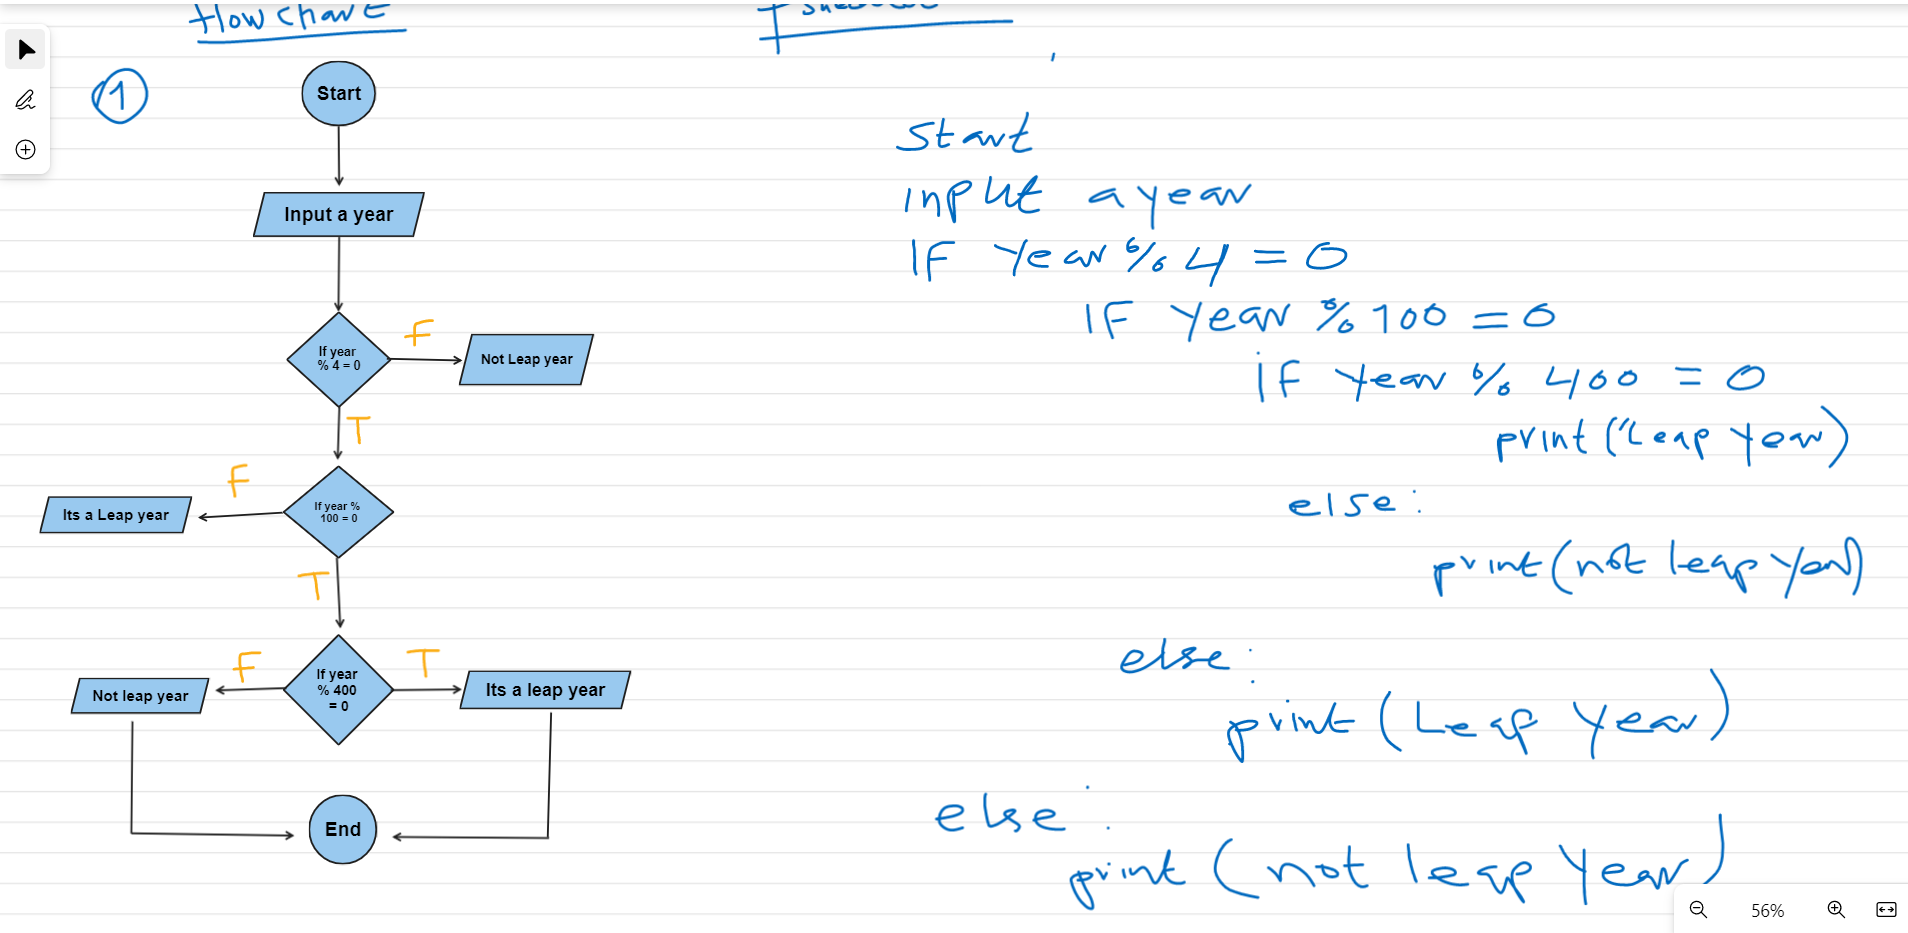 Flowchart
1
Start
Input a year
If year
% 4 = 0
F
Not Leap year
T
F
Its a Leap year
If year %
100 = 0
T
F
Not leap year
If year
% 400
= 0
T
Its a leap year
End
Start
input a year
IF Year % 4 = 0
IF Year % 100 = 0
if Year % 400 = 0
print ("Leap Year)
else:
print (not leap Year)
else:
print (Leap Year)
else:
print (not leap Year)
56%